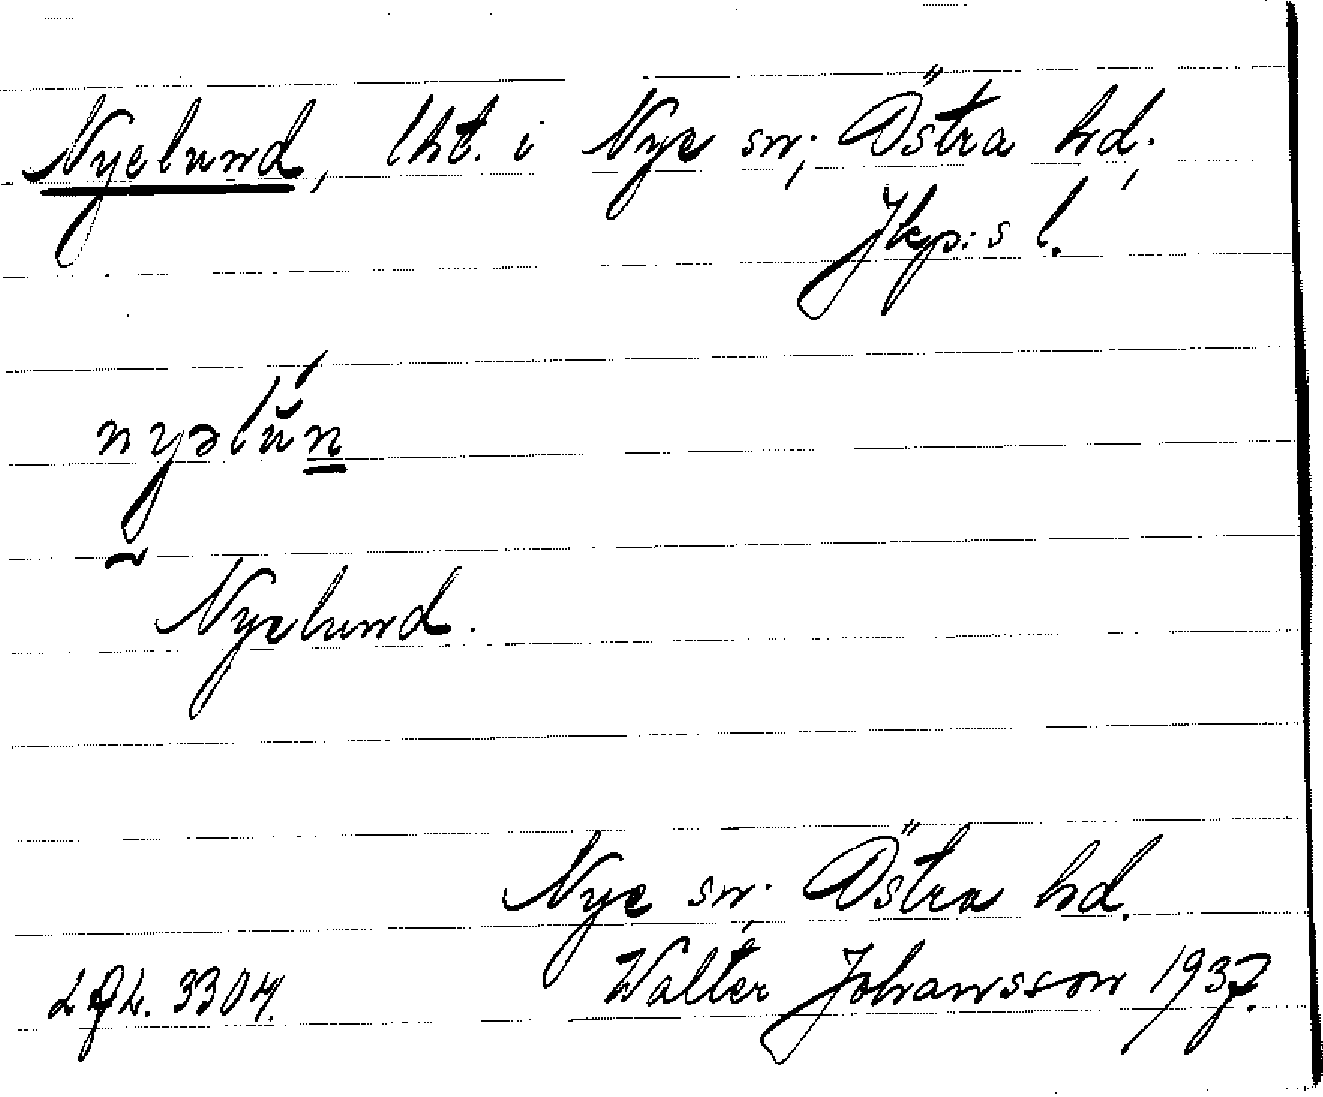 Nyelund, lht. i Nye sn; Östra hd;
Jkp:s l.
nyəlŭ́n
Nyelund.
Nye sn; Östra hd.
Walter Johansson 1937.
3304.